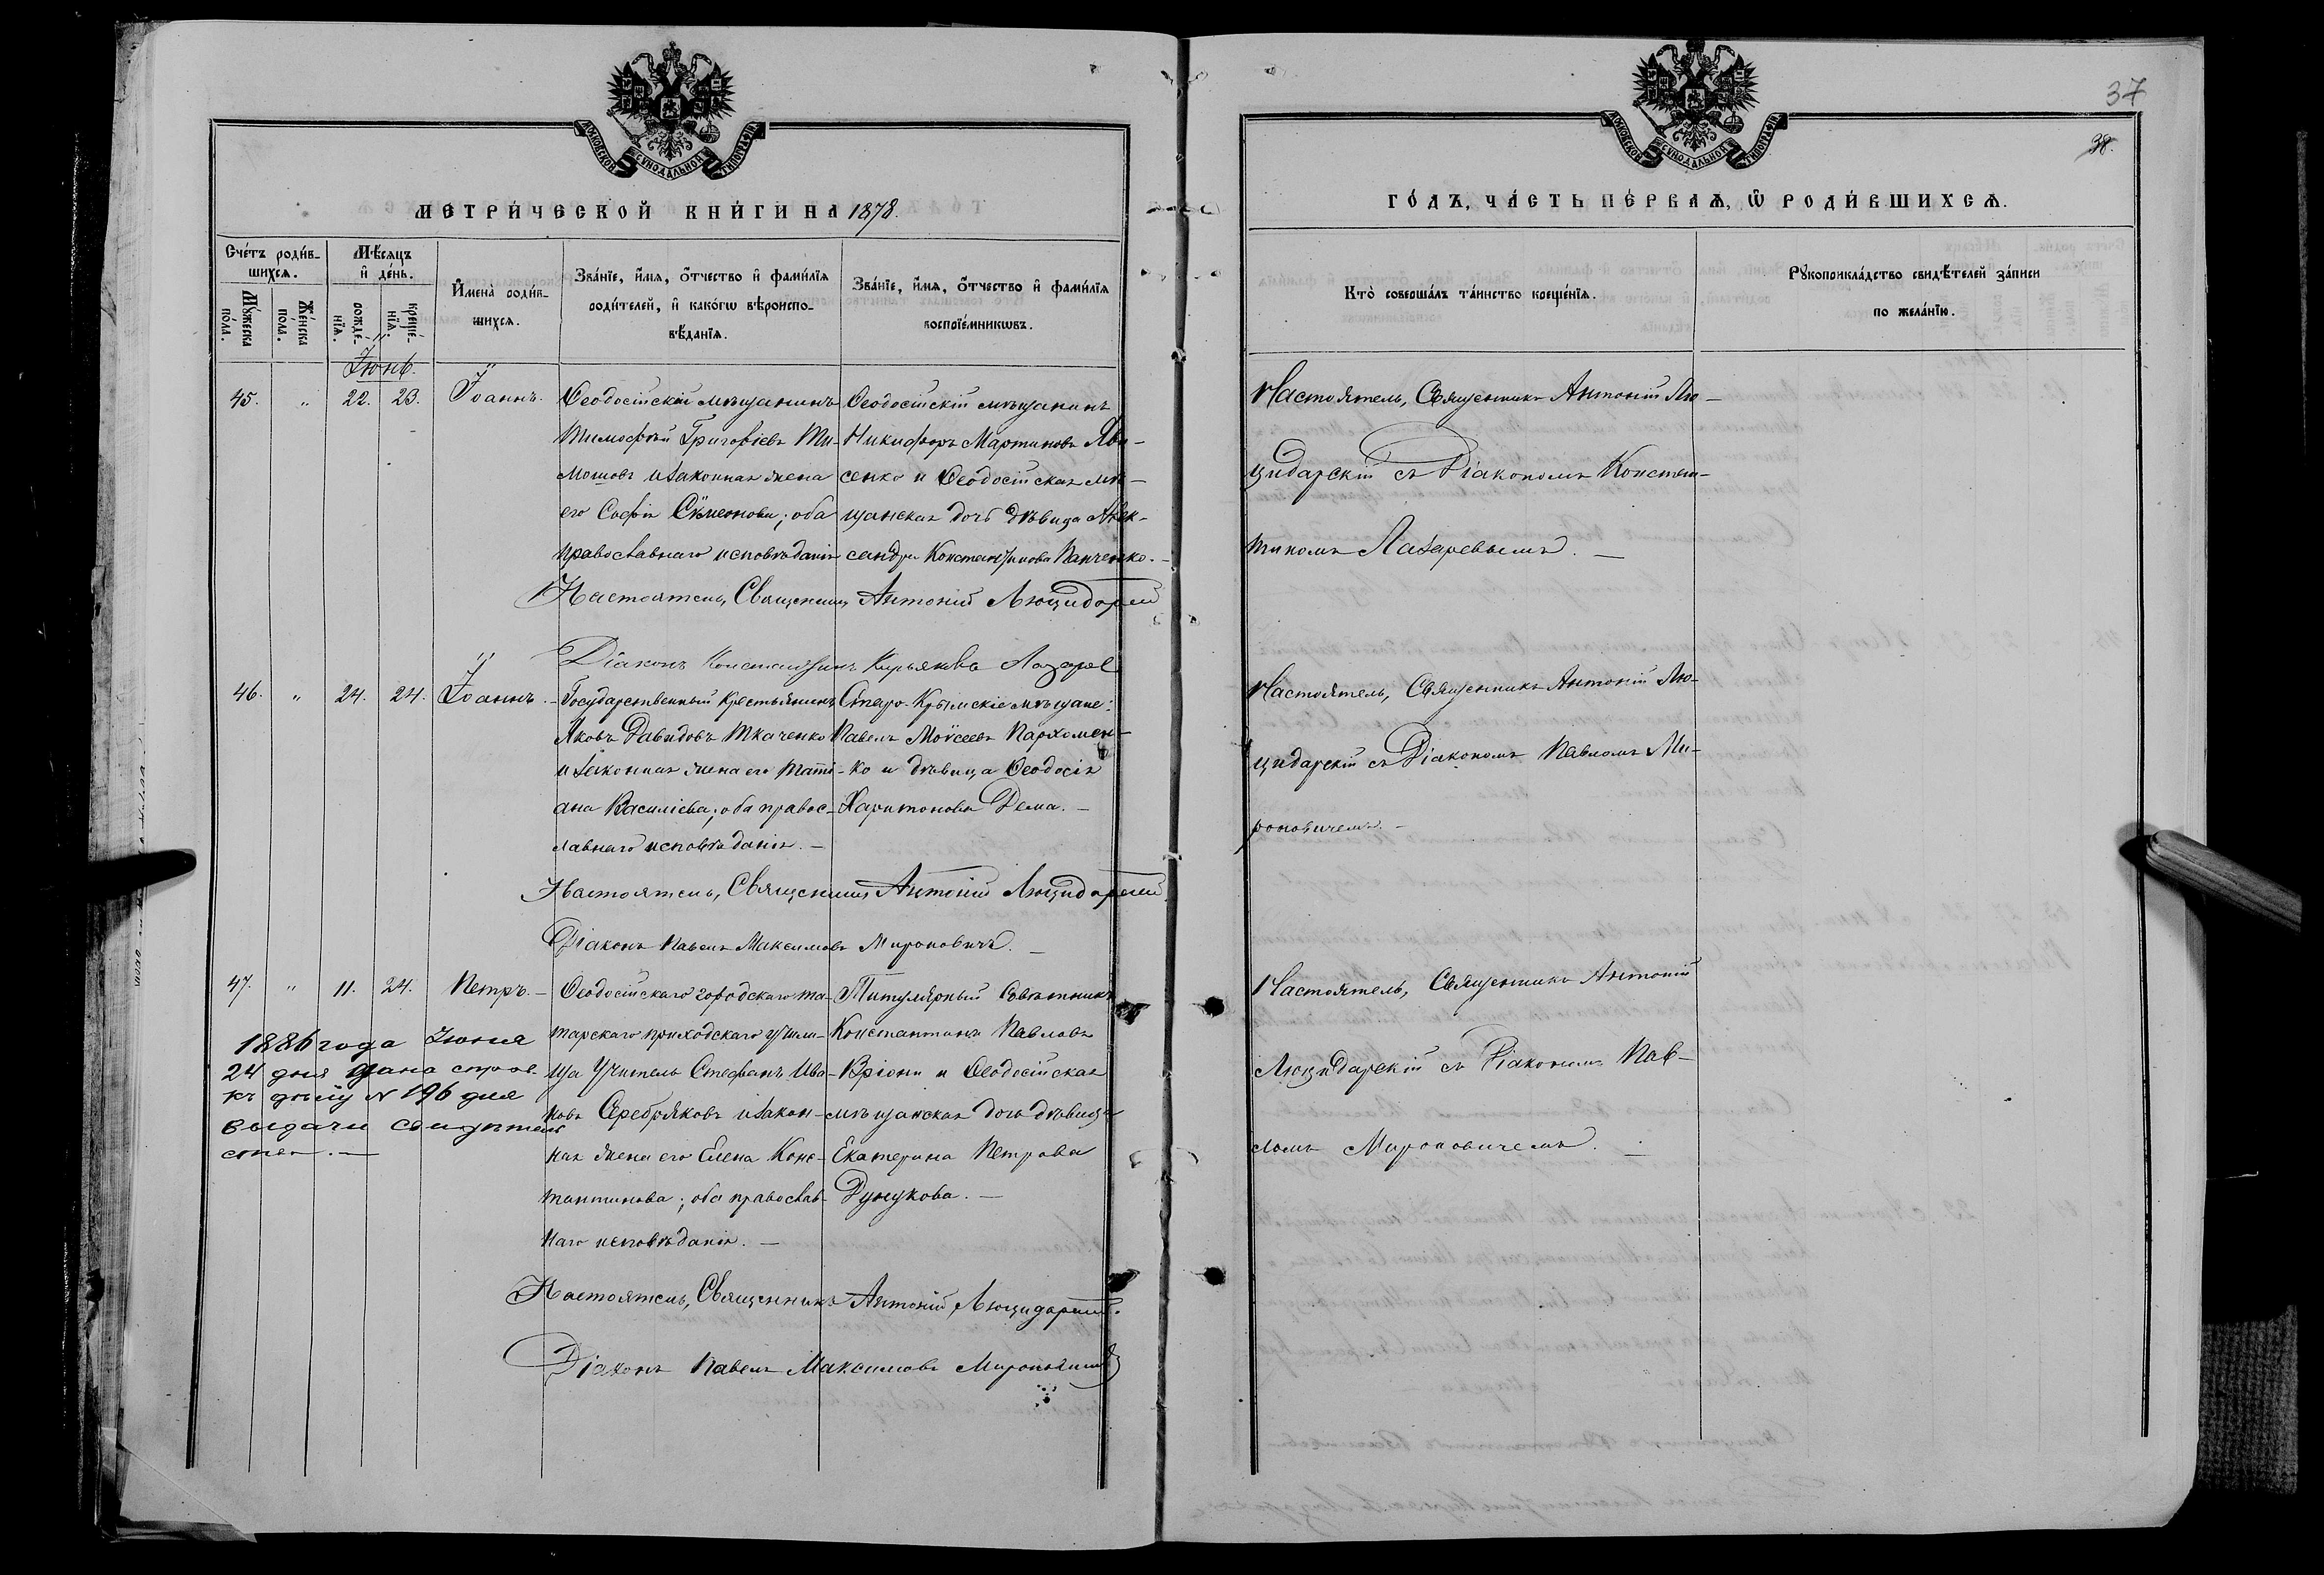 МОСКОВСКОЙ СѴНОДАЛЬНОЙ ТИПОГРАФІИ
МЕТРИ́ЧЕСКОЙ КНИ́ГИ НА 1878.
Сче́тъ роди́в-
шихсѧ.
Мꙋ́жеска по́ла.
Же́нска по́ла.
Мѣ́сѧцъ и҆ де́нь.
рожде́-нїѧ.
креще́-нїѧ.
И҆мена̀ роди́в-
шихсѧ.
Зва́нїе, и҆́мѧ, ѻ҆́тчество и҆ фами́лїѧ
роди́телей, и҆ како́гѡ вѣроиспо-
вѣ́данїѧ.
Зва́нїе, и҆́мѧ, ѻ҆́тчество и҆ фами́лїѧ
воспрїе́мникѡвъ.
Іюнь.
45. " 22. 23. Іоаннъ.
Ѳеодосійскій мѣщанинъ
Тимоѳей Григоріевъ Ти-
мошовъ и законная жена
его Софія Сѵмеонова; оба
православнаго исповѣданія
Ѳеодосійскій мѣщанинъ
Никифоръ Мартиновъ
сенко и Ѳеодосійская мѣ-
щанская дочь дѣвица Алек-
сандра Константинова Панченко.
Настоятель, Священникъ Антоній Люцидарскій
Діаконъ Константинъ Кирьяковъ Лазарев
46. " 24. 24. Іоаннъ.
Государственный крестьянинъ
Яковъ Давидовъ Ткаченко
и законная жена его Таті-
ана Василіева; оба правос-
лавнаго исповѣданія. —
Старо-Крымскіе мѣщане:
Павелъ Моѵсеевъ Пархомен-
ко и дѣвица Ѳеодосія
Харитонова Дема. —
Настоятель, Священникъ Антоній Люцидарскій
Діаконъ Павелъ Максимовъ Мироновичъ. —
47. " 11. 24. Петръ. —
Ѳеодосійскаго городскаго та-
тарскаго приходскаго учили-
ща Учитель Стефанъ Ива-
новъ Серебряковъ и закон-
ная жена его Елена Конс-
тантинова; оба православ-
наго исповѣданія. —
Титулярный Совѣтникъ
Константинъ Павловъ
Вріони и Ѳеодосійская
мѣщанская дочь дѣвица
Екатерина Петрова
Дунукова. —
1886 года Іюня
24 дня дана справ.
къ дѣлу № 196 для
выдачи свидѣтель
ства. —
Настоятель, Священникъ Антоній Люцидарскій.
Діаконъ Павелъ Максимовъ Мироновичъ
37
38.
МОСКОВСКОЙ СѴНОДАЛЬНОЙ ТИПОГРАФІИ
ГО́ДЪ, ЧА́СТЬ ПЕ́РВАѦ, Ѡ҆ РОДИ́ВШИХСѦ.
Кто̀ соверша́лъ та́инство креще́нїѧ.
Рꙋкоприкла́дство свидѣ́телей за́писи
по жела́нїю.
Настоятель, Священникъ Антоній Лю-
цидарскій съ Діакономъ Констан-
тиномъ Лазаревымъ. —
Настоятель, Священникъ Антоній Лю-
цидарскій съ Діакономъ Павломъ Ми-
роновичемъ. —
Настоятель, Священникъ Антоній
Люцидарскій съ Діакономъ Пав-
ломъ Мироновичемъ. —